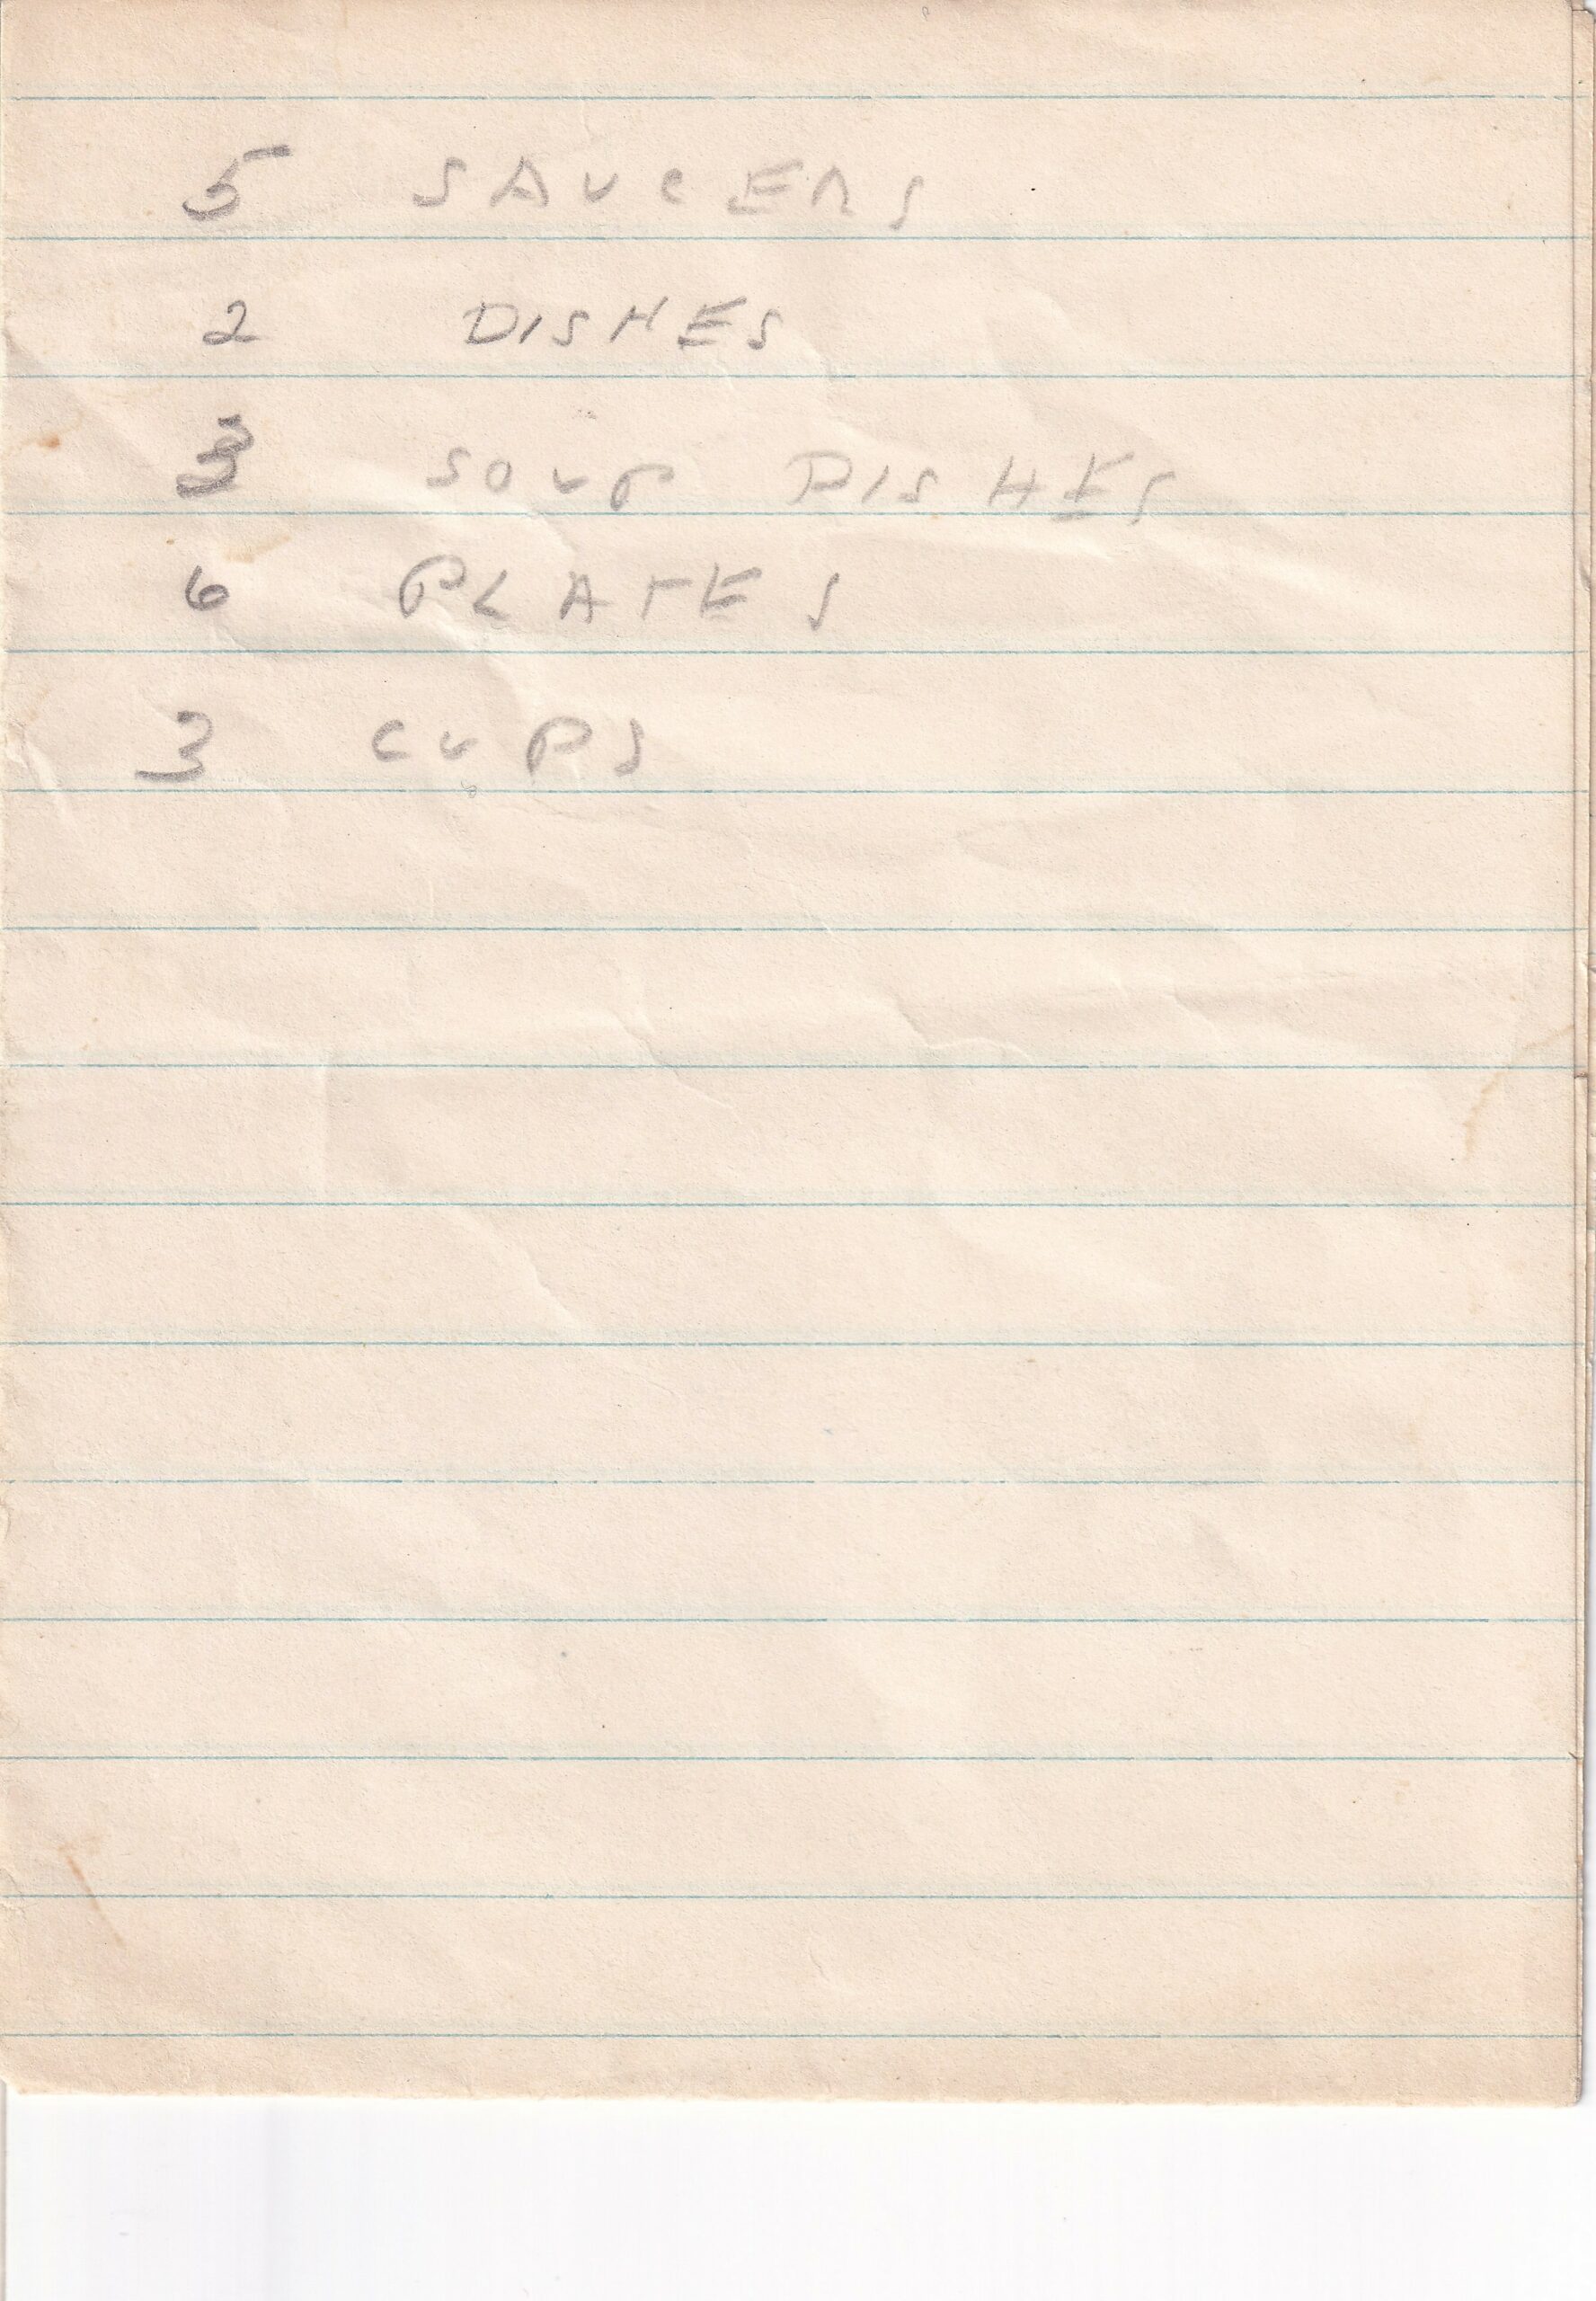 5 SAUCERS
2 DISHES
3 SOUP DISHES
6 PLATES
3 CUPS